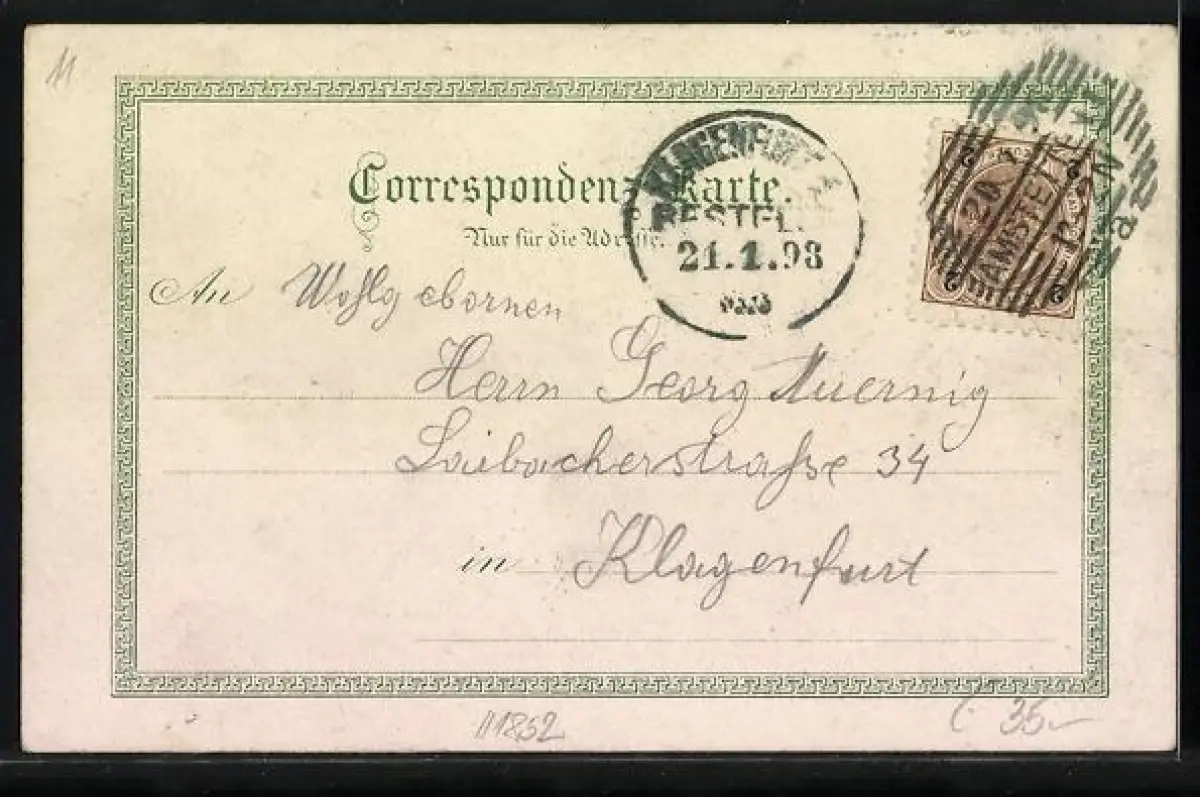 11
Correspondenz-Karte.
Nur für die Adresse.
KLAGENFURT
BESTELLT
21.1.98
20 1
AMSTETTEN
2 2
2 2
An Wohlgebornen
Herrn Georg Auernig
Laibacherstraße 34
in Klagenfurt
11852
35.-